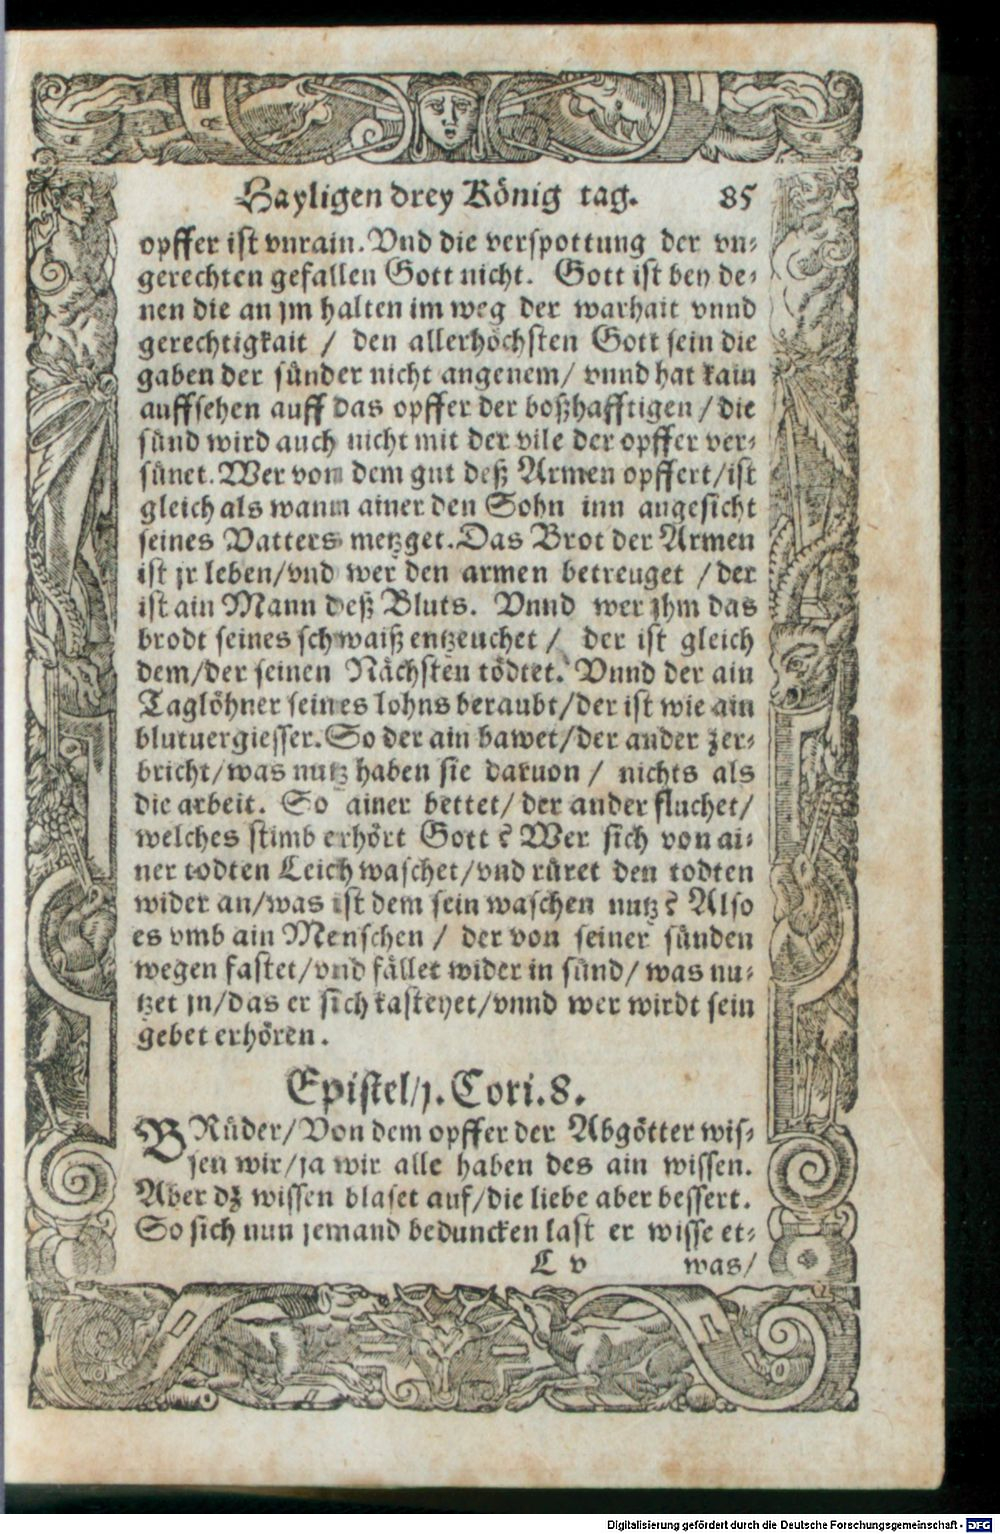 Hayligen drey König tag. 85
opffer ist vnrain. Vnd die verspottung der vn⸗
gerechten gefallen Gott nicht. Gott ist bey de⸗
nen die an jm halten im weg der warhait vnnd
gerechtigkait / den allerhöchsten Gott sein die
gaben der sünder nicht angenem/ vnnd hat kain
auffsehen auff das opffer der boßhafftigen / die
sünd wird auch nicht mit der vile der opffer ver⸗
sünet. Wer von dem gut deß Armen opffert/ist
gleich als wann ainer den Sohn inn angesicht
seines Vatters metzget. Das Brot der Armen
ist jr leben/vnd wer den armen betreuget / der
ist ain Mann deß Bluts. Vnnd wer jhm das
brodt seines schwaiß entzeuchet / der ist gleich
dem/der seinen Nächsten tödtet. Vnnd der ain
Taglöhner seines lohns beraubt/der ist wie ain
blutuergiesser. So der ain bawet/der ander zer⸗
bricht/was nutz haben sie daruon / nichts als
die arbeit. So ainer bettet/ der ander fluchet/
welches stimb erhört Gott? Wer sich von ai⸗
ner todten Leich waschet/vnd rüret den todten
wider an/was ist dem sein waschen nutz? Also
es vmb ain Menschen / der von seiner sünden
wegen fastet/vnd fället wider in sünd/ was nu⸗
tzet jn/das er sich kasteyet/vnnd wer wirdt sein
gebet erhören.
Epistel/j. Cori. 8.
BRüder/Von dem opffer der Abgötter wis⸗
sen wir/ja wir alle haben des ain wissen.
Aber dz wissen blaset auf/die liebe aber bessert.
So sich nun jemand beduncken last er wisse et⸗
L v was/
Digitalisierung gefördert durch die Deutsche Forschungsgemeinschaft - DFG